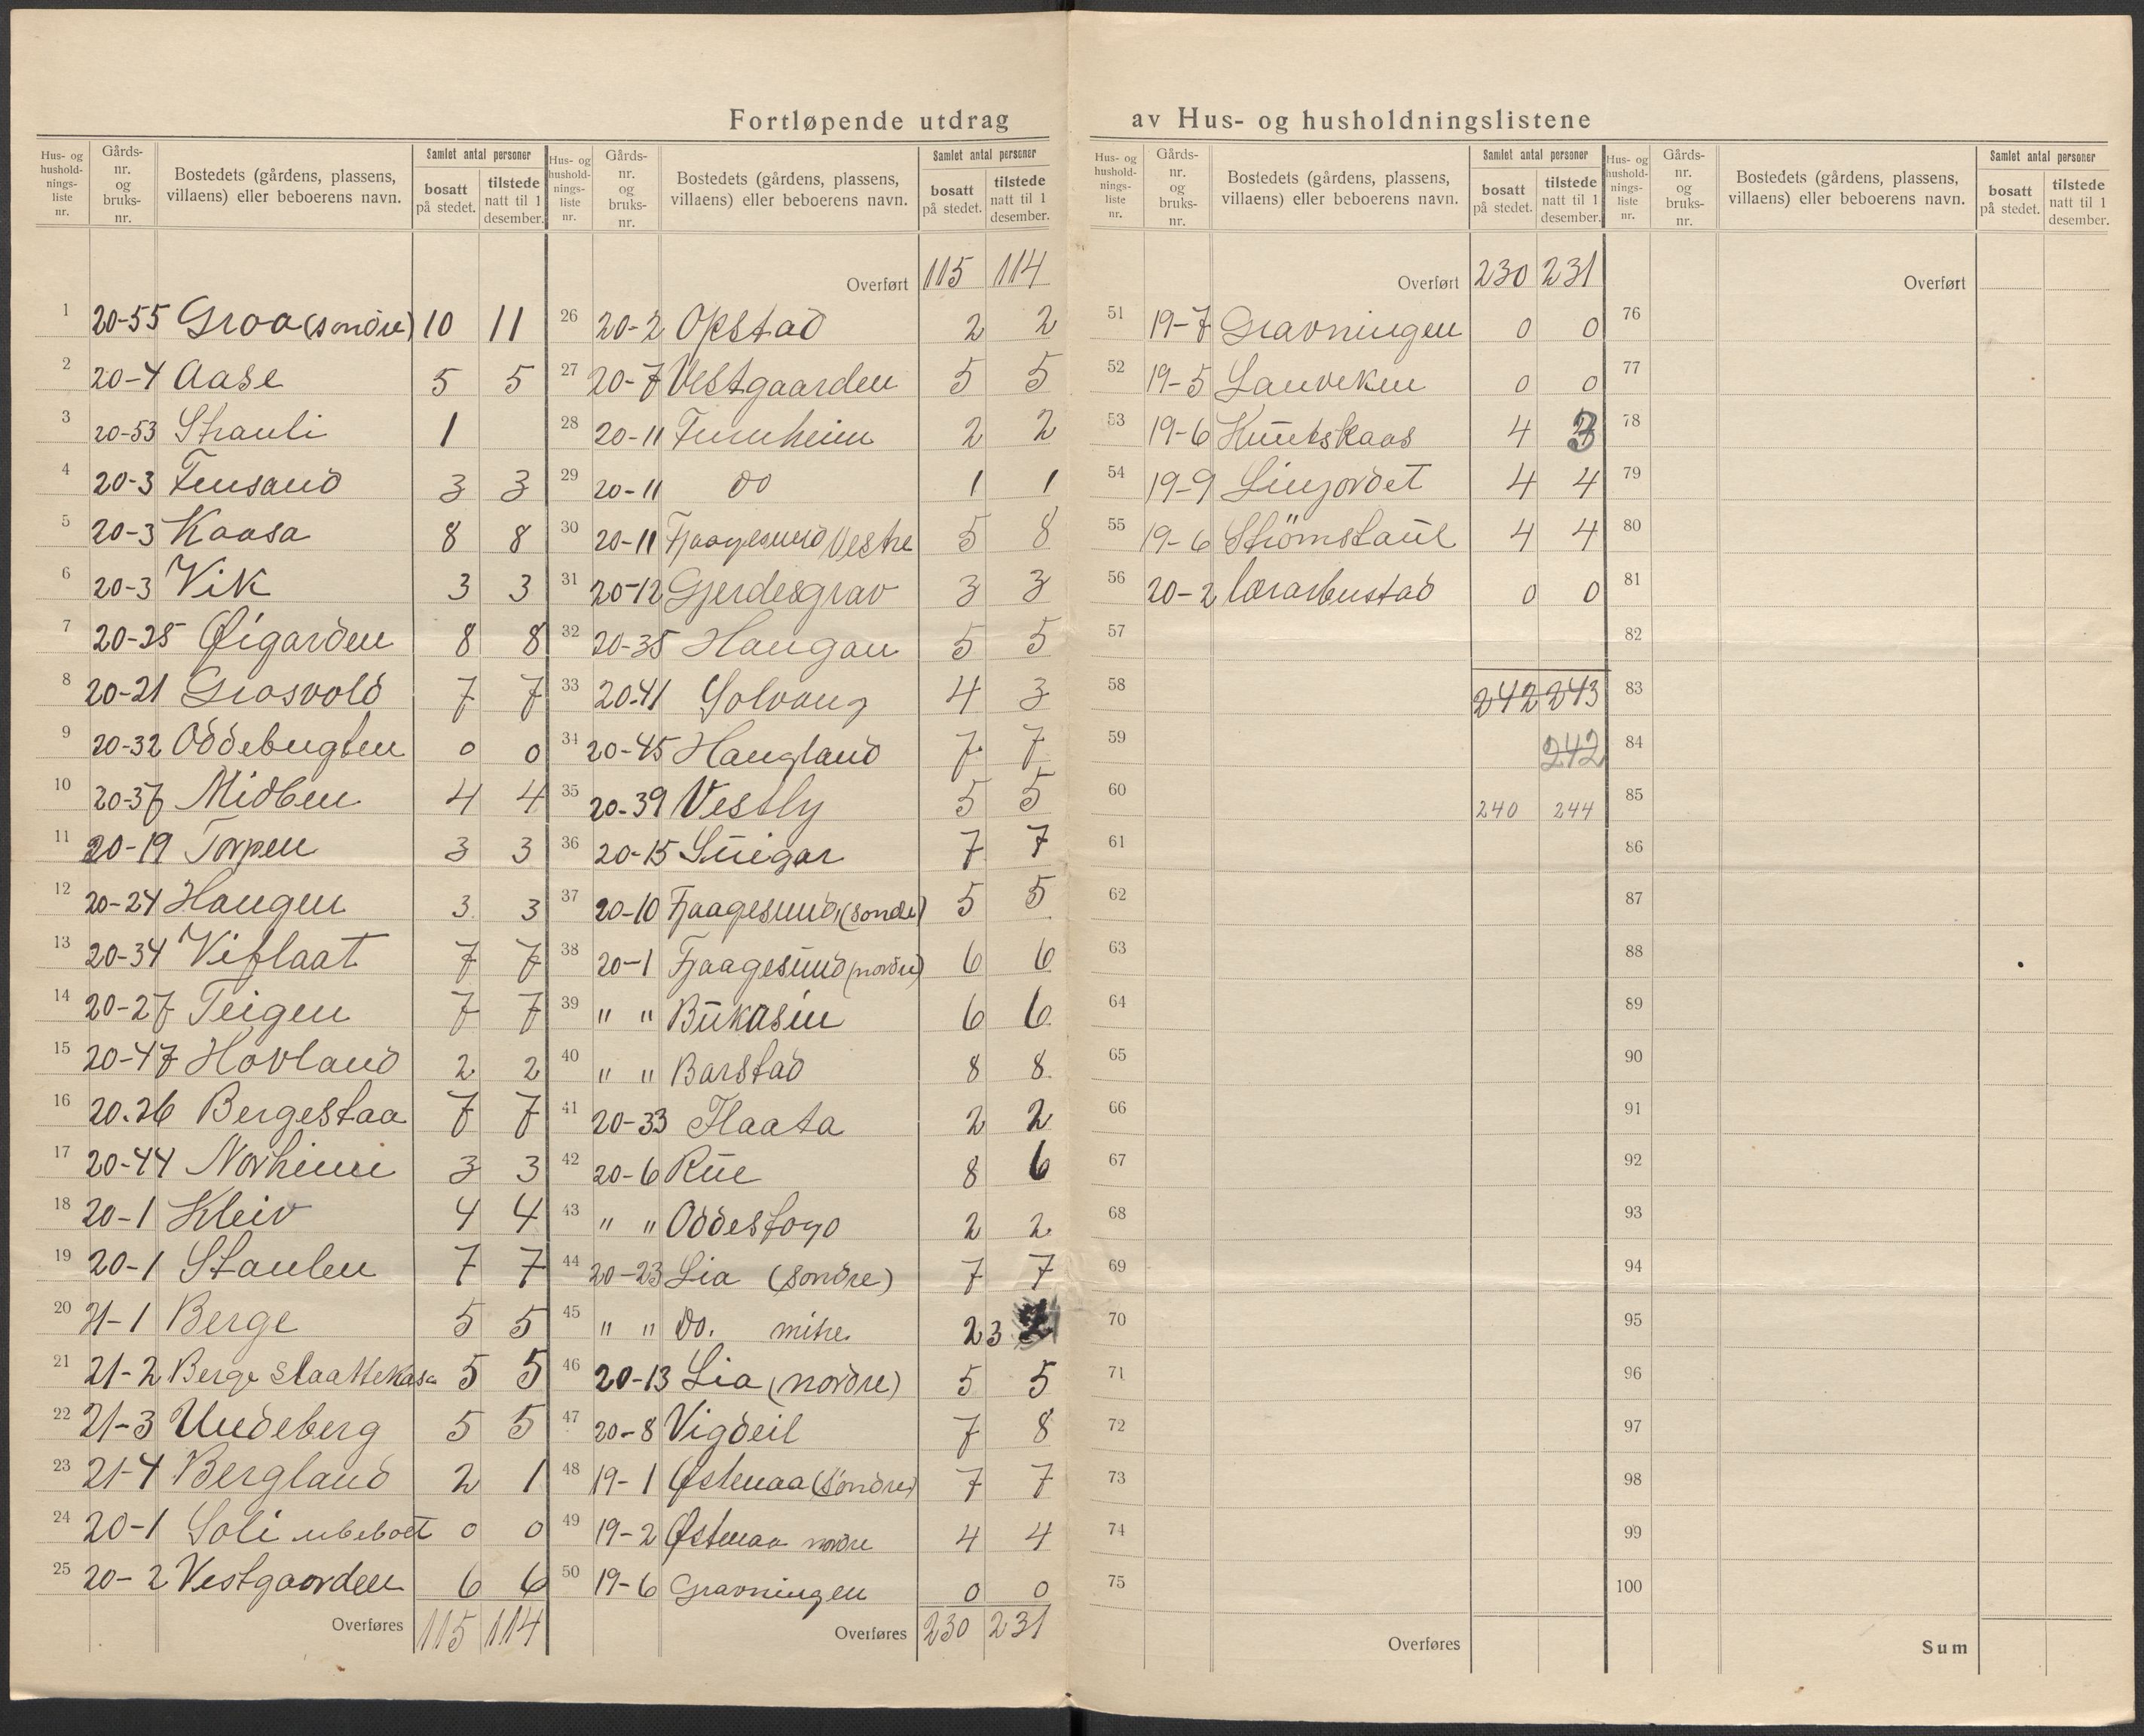 Fortløpende utdrag av Hus- og husholdningslistene
Hus- og hushold-nings-liste nr. | Gårds-nr. og bruks-nr. | Bostedets (gårdens, plassens, villaens) eller beboerens navn. | Samlet antal personer bosatt på stedet. | tilstede natt til 1 desember.
1 20-55 Groa (sondre) 10 11
2 20-4 Aase 5 5
3 20-53 Strauli 1
4 20-3 Tensand 3 3
5 20-3 Kaasa 8 8
6 20-3 Vik 3 3
7 20-25 Øigarden 8 8
8 20-21 Grosvold 7 7
9 20-32 Oddebugten 0 0
10 20-37 Midbeu 4 4
11 20-19 Torpen 3 3
12 20-24 Haugen 3 3
13 20-34 Viflaat 7 7
14 20-27 Teigen 7 7
15 20-47 Hovland 2 2
16 20.26 Bergestaa 7 7
17 20-44 Norheim 3 3
18 20-1 Kleiv 4 4
19 20-1 Staulen 7 7
20 21-1 Berge 5 5
21 21-2 Berge Slaattekasa 5 5
22 21-3 Undeberg 5 5
23 21-4 Bergland 2 1
24 20-1 Soli ubeboet 0 0
25 20-2 Vestgaarden 6 6
Overføres 115 114
Hus- og hushold-nings-liste nr. | Gårds-nr. og bruks-nr. | Bostedets (gårdens, plassens, villaens) eller beboerens navn. | Samlet antal personer bosatt på stedet. | tilstede natt til 1 desember.
Overført 115 114
26 20-2 Opstad 2 2
27 20-7 Vestgaarden 5 5
28 20-11 Furuheim 2 2
29 20-11 do 1 1
30 20-11 Fjaagesund Vestre 5 8
31 20-12 Gjerdesgrav 3 3
32 20-35 Haugan 5 5
33 20-41 Solvang 4 3
34 20-45 Haugland 7 7
35 20-39 Vestly 5 5
36 20-15 Snigar 7 7
37 20-10 Fjaagesund, (sondre) 5 5
38 20-1 Fjaagesund (nordre) 6 6
39 " " Bukasin 6 6
40 " " Barstad 8 8
41 20-33 Flaata 2 2
42 20-6 Rue 8 6
43 " " Oddestogo 2 2
44 20-23 Lia (sondre) 7 7
45 " " Do. mitre. 2 3
46 20-13 Lia (nordre) 5 5
47 20-8 Vigdeil 7 8
48 19-1 Østenaa (Sondre) 7 7
49 19-2 Østenaa nordre 4 4
50 19-6 Gravningen 0 0
Overføres 230 231
Hus- og hushold-nings-liste nr. | Gårds-nr. og bruks-nr. | Bostedets (gårdens, plassens, villaens) eller beboerens navn. | Samlet antal personer bosatt på stedet. | tilstede natt til 1 desember.
Overført 230 231
51 19-7 Gravningen 0 0
52 19-5 Lauveken 0 0
53 19-6 Knutskaas 4 3
54 19-9 Linjordet 4 4
55 19-6 Strömstaul 4 4
56 20-2 lærarbustad 0 0
57
58 242 243
59 242
60 240 244
61
62
63
64
65
66
67
68
69
70
71
72
73
74
75
Overføres
Hus- og hushold-nings-liste nr. | Gårds-nr. og bruks-nr. | Bostedets (gårdens, plassens, villaens) eller beboerens navn. | Samlet antal personer bosatt på stedet. | tilstede natt til 1 desember.
Overført
76
77
78
79
80
81
82
83
84
85
86
87
88
89
90
91
92
93
94
95
96
97
98
99
100
Sum